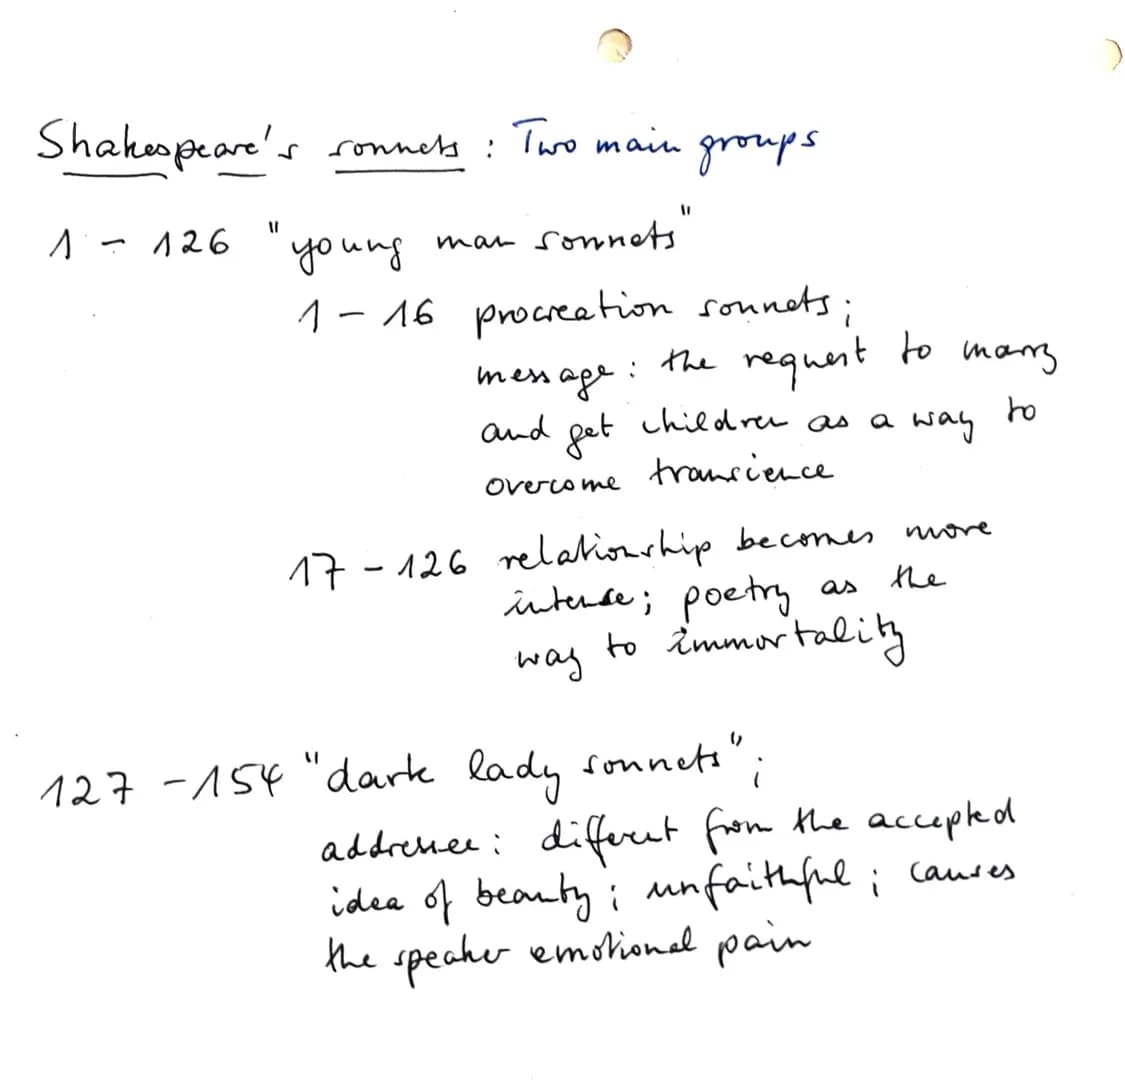 Shakespeare's sonnets : Two main groups
1 - 126 "young man sonnets"
1 - 16 procreation sonnets;
message: the request to marry
and get children as a way to
overcome transience
17 - 126 relationship becomes more
intense; poetry as the
way to immortality
127 - 154 "dark lady sonnets";
addressee: different from the accepted
idea of beauty; unfaithful; causes
the speaker emotional pain